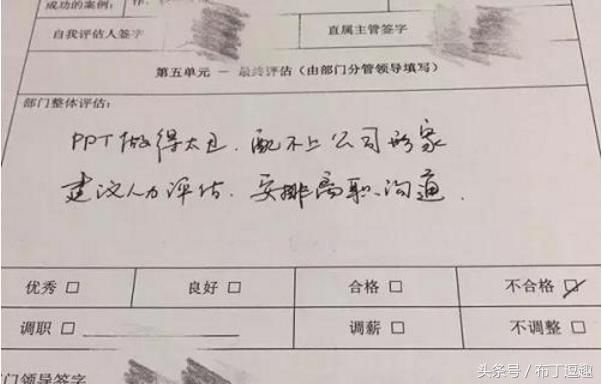 成功的案例：
自我评估人签字 直属主管签字
第五单元 — 最终评估（由部门分管领导填写）
部门整体评估：
PPT做得太丑，配不上公司形象
建议人力评估，安排离职沟通．
优秀 □ 良好 □ 合格 □ 不合格 ☑
调职 □ 调薪 □ 不调整 □
门领导签字
头条号 / 布丁逗趣